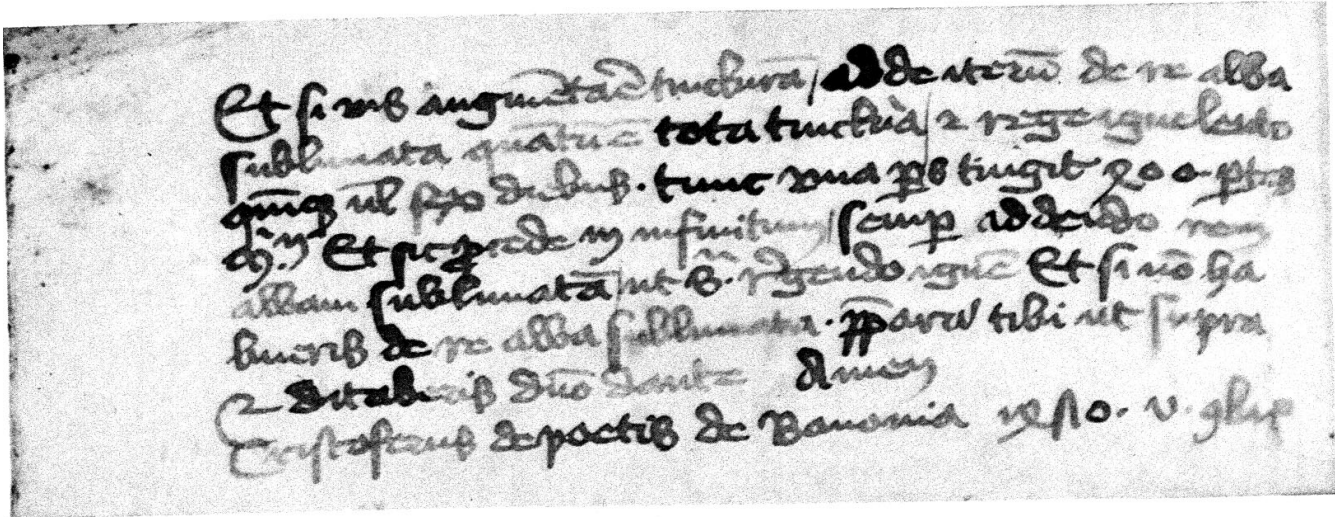 Et si vis augmẽtaẽ tincturã / adde iterũ de re alba
sublimata quãtũ ẽ tota tinctura / ⁊ rege igne lento
vl sex diebus · tunc una ps tingit 200 ptes
Et sic pcede in infinitum / semp addendo rem
albam sublimatã / ut s. regendo ignẽ Et si nõ ha
bueris de re alba sublimata · ppara tibi ut supra
⁊ ditaberis dño dante Amen
Cristoferus de poetis de Bononia